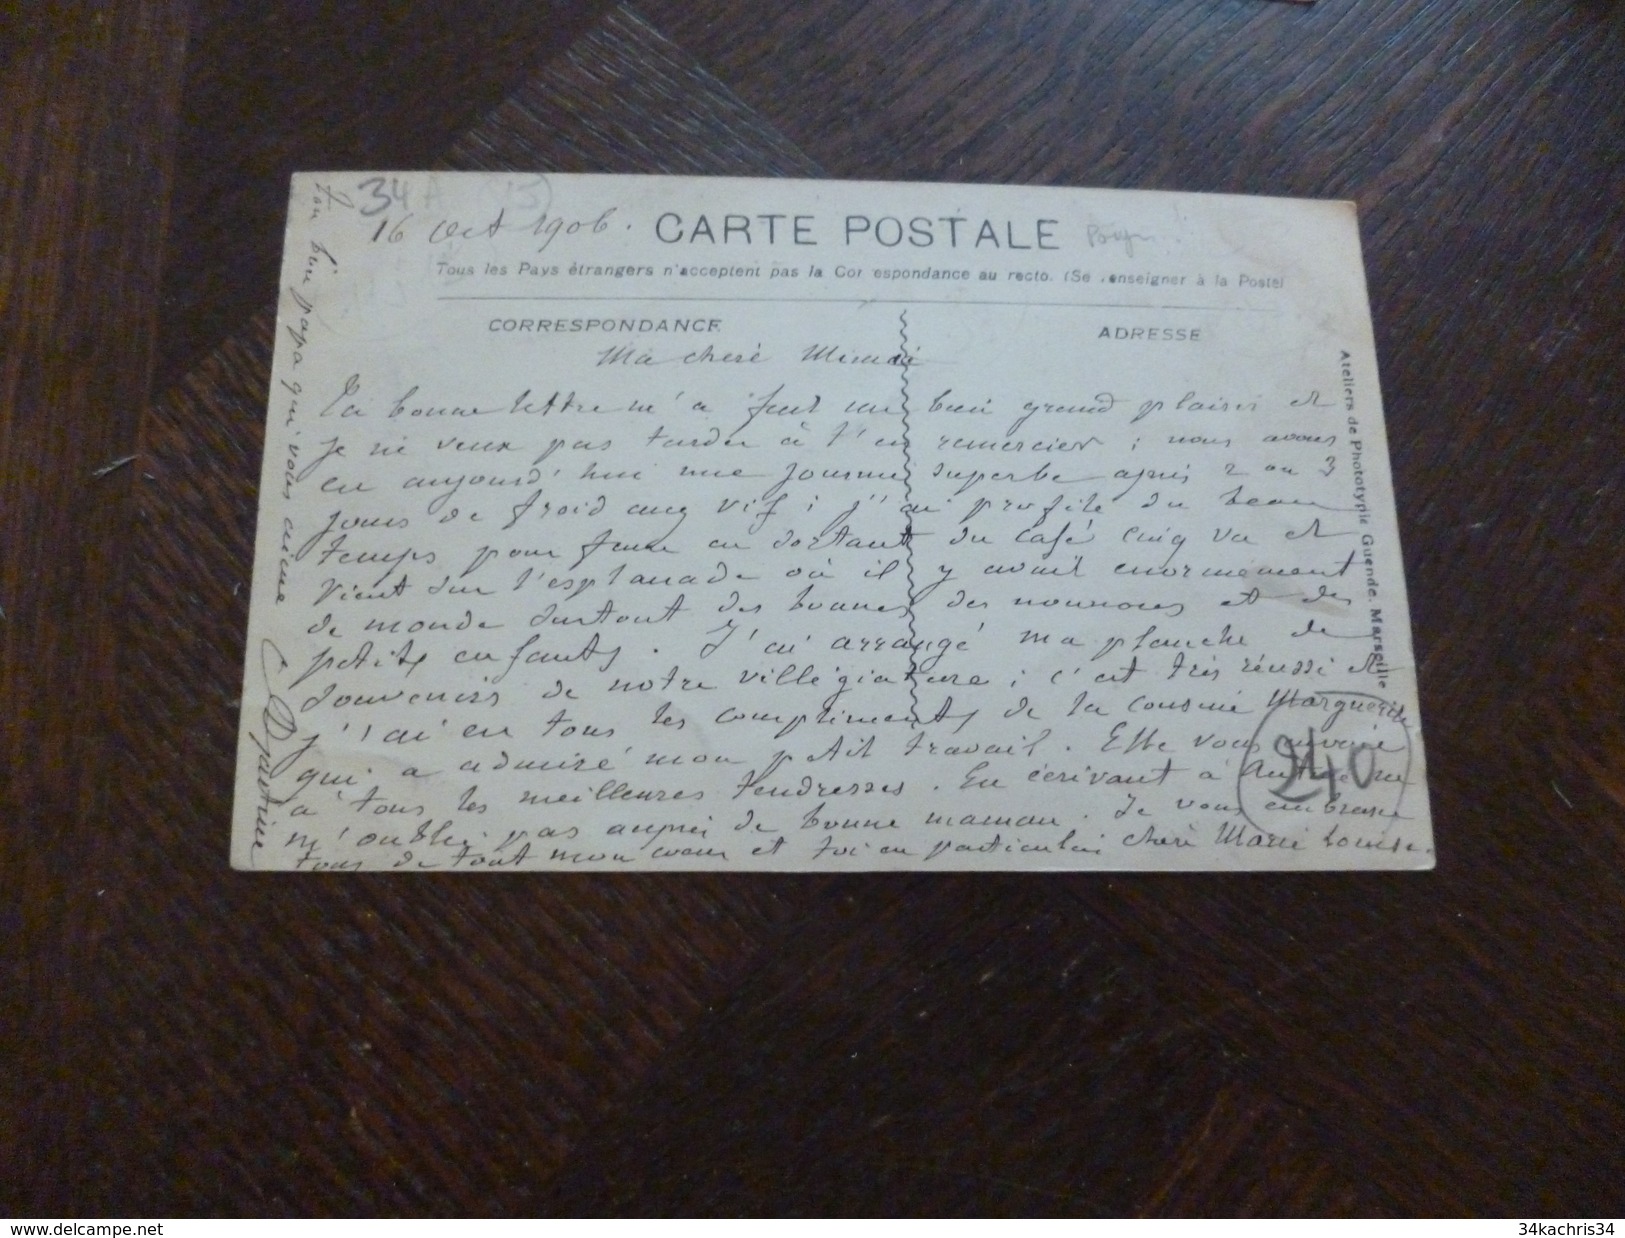 34 A
16 Oct 1906.
CARTE POSTALE
Tous les Pays étrangers n'acceptent pas la Cor espondance au recto. (Se .enseigner à la Poste)
CORRESPONDANCE
ADRESSE
Ma cheré
Ta bonne lettre m'a fait un bien grand plaisir et
je ne veux pas tarder à t'en remercier ; nous avons
eu aujourd'hui une journeé superbe aprés 2 ou 3
jours de froid assez vif ; j'ai profité du beau
temps pour faire en sortant du café cinq va et
vient sur l'esplanade où il y avait enormement
de monde surtout des bonnes des nounous et des
petits enfants. J'ai arrangé ma planche de
souvenirs de notre villégiature ; c'est très réussi et
j'ai eu tous les compliments de la cousine Marguerite
qui a admiré mon petit travail. Elle vous envoie
à tous les meilleures tendresses. En écrivant à
m'oublie pas auprés de bonne maman. Je vous embrasse
tous de tout mon cœur et toi en particulier cheré Marie Louise.
Ton bien papa qui vous aime
240
Ateliers de Phototypie Guende. Marseille
www.delcampe.net
34kachris34